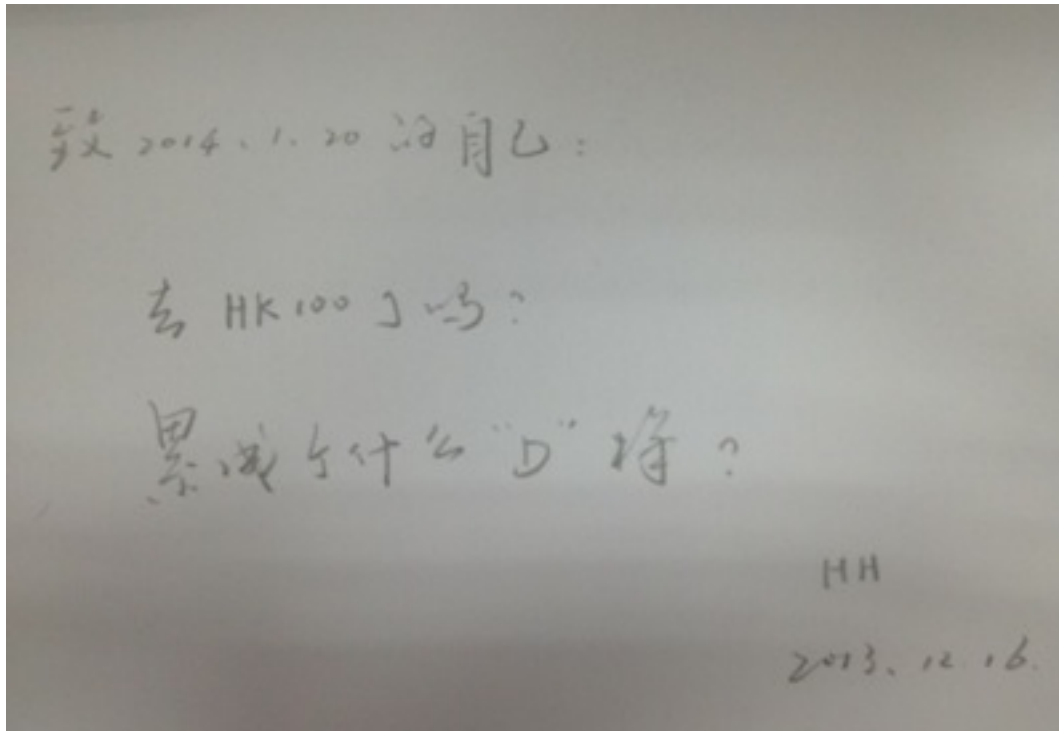 致2014.1.20的自己:
去HK100了吗?
累成个什么“D”样?
HH
2013.12.16.